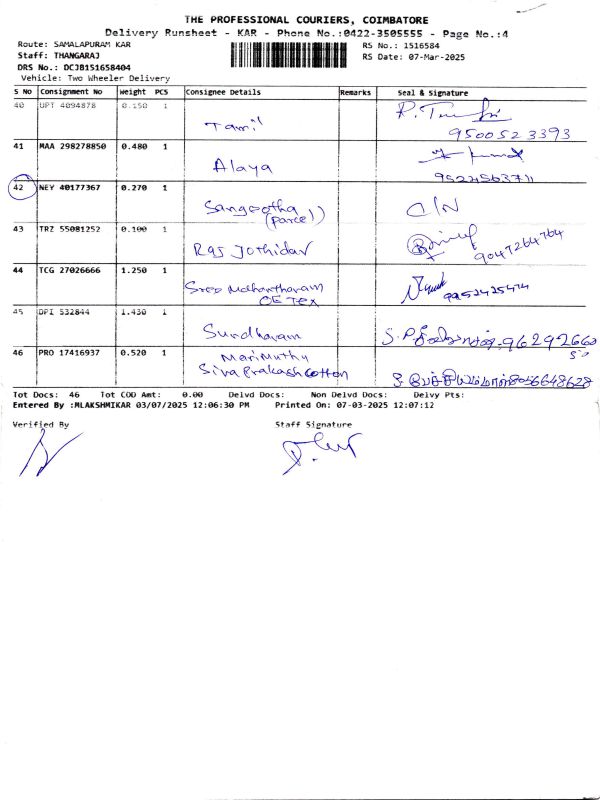 THE PROFESSIONAL COURIERS, COIMBATORE
Delivery Runsheet - KAR - Phone No.:0422-3505555 - Page No.:4
Route: SAMALAPURAM KAR
RS No.: 1516584
Staff: THANGARAJ
RS Date: 07-Mar-2025
DRS No.: DCJB151658404
Vehicle: Two Wheeler Delivery
S NO Consignment No Weight PCS Consignee Details Remarks Seal & Signature
40 UPT 4094878 0.150 1 Tamil
9500523393
41 MAA 298278850 0.480 1 Alaya
9524563711
42 NEY 40177367 0.270 1 Sangeetha C/N
(Parcel)
43 TRZ 55081252 0.100 1 Raj Jothidar 9047264764
44 TCG 27026666 1.250 1 Sree Mathantharam 9952425474
OE Tex
45 DPI 532844 1.430 1 Sundharam
46 PRO 17416937 0.520 1 Marimuthu
Sivaprakash cotton 8056648628
Tot Docs: 46 Tot COD Amt: 0.00 Delvd Docs: Non Delvd Docs: Delvy Pts:
Entered By :MLAKSHMIKAR 03/07/2025 12:06:30 PM Printed On: 07-03-2025 12:07:12
Verified By Staff Signature